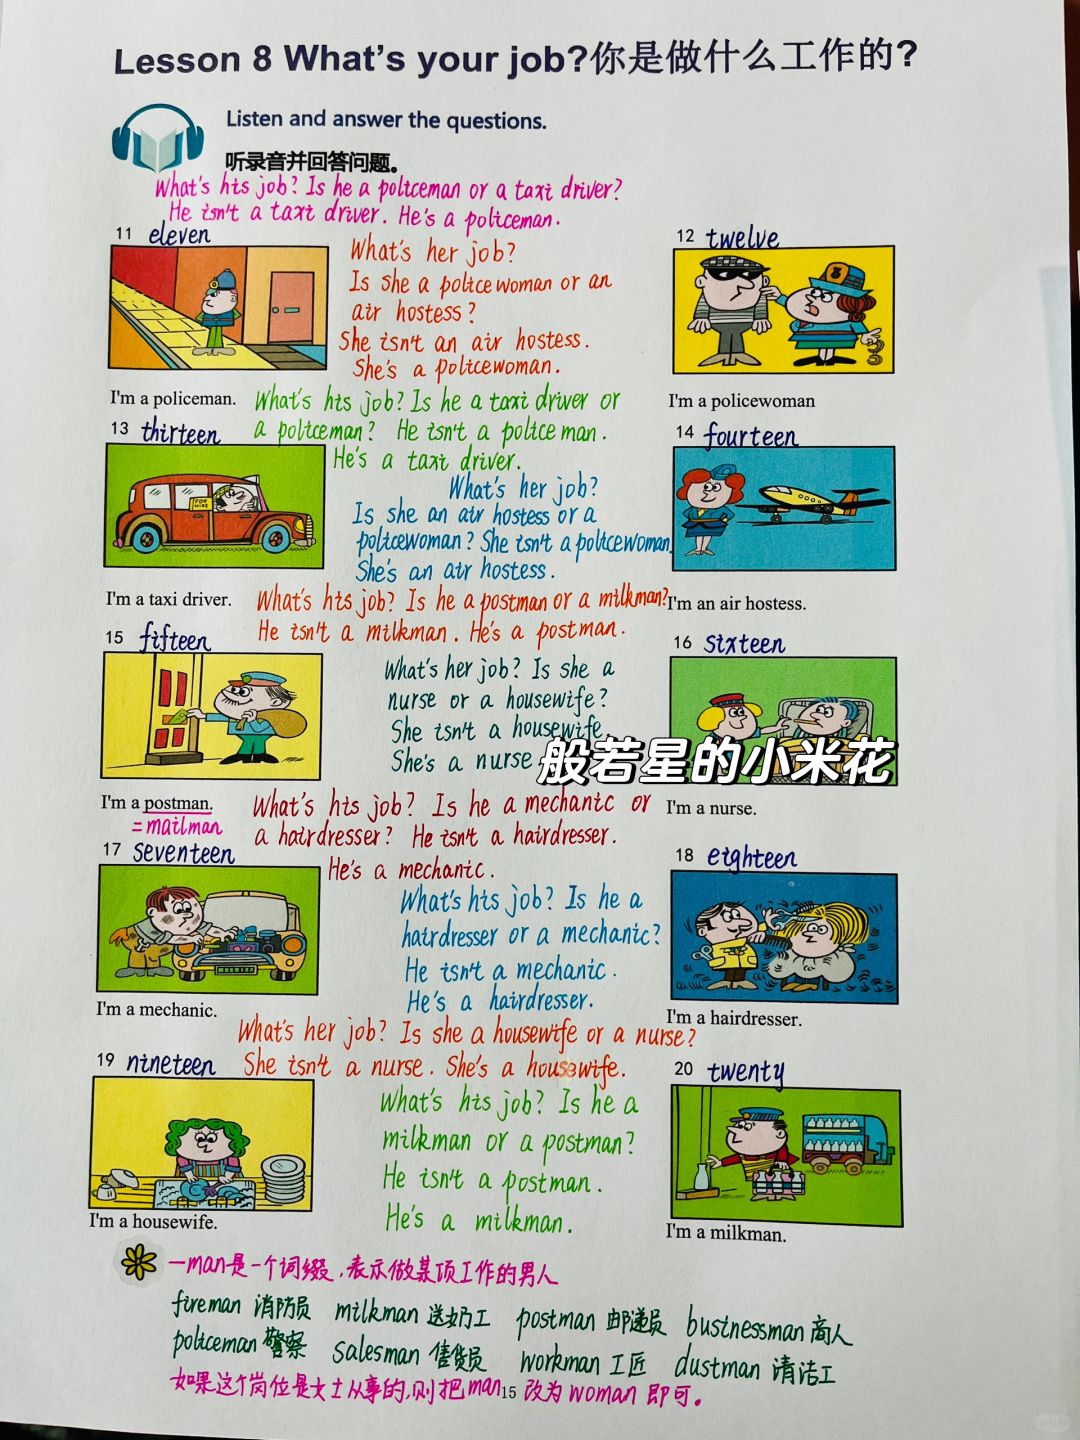 Lesson 8 What's your job?你是做什么工作的?
Listen and answer the questions.
听录音并回答问题。
What's his job? Is he a policeman or a taxi driver?
He isn't a taxi driver. He's a policeman.
11 eleven
What's her job?
Is she a policewoman or an
air hostess?
She isn't an air hostess.
She's a policewoman.
12 twelve
I'm a policeman.
I'm a policewoman
What's his job? Is he a taxi driver or
a policeman? He isn't a policeman.
He's a taxi driver.
13 thirteen
FOR
HIRE
What's her job?
Is she an air hostess or a
policewoman? She isn't a policewoman.
She's an air hostess.
14 fourteen
I'm a taxi driver.
I'm an air hostess.
What's his job? Is he a postman or a milkman?
He isn't a milkman. He's a postman.
15 fifteen
What's her job? Is she a
nurse or a housewife?
She isn't a housewife
She's a nurse
16 sixteen
般若星的小米花
I'm a postman.
=mailman
I'm a nurse.
What's his job? Is he a mechanic or
a hairdresser? He isn't a hairdresser.
He's a mechanic.
17 seventeen
What's his job? Is he a
hairdresser or a mechanic?
He isn't a mechanic.
He's a hairdresser.
18 eighteen
I'm a mechanic.
I'm a hairdresser.
What's her job? Is she a housewife or a nurse?
She isn't a nurse. She's a housewife.
19 nineteen
What's his job? Is he a
milkman or a postman?
He isn't a postman.
He's a milkman.
20 twenty
I'm a housewife.
I'm a milkman.
一man是一个词缀,表示做某项工作的男人
fireman 消防员 milkman 送奶工 postman 邮递员 businessman 商人
policeman 警察 salesman 售货员 workman 工匠 dustman 清洁工
如果这个岗位是女士从事的,则把man 改为woman 即可。
15